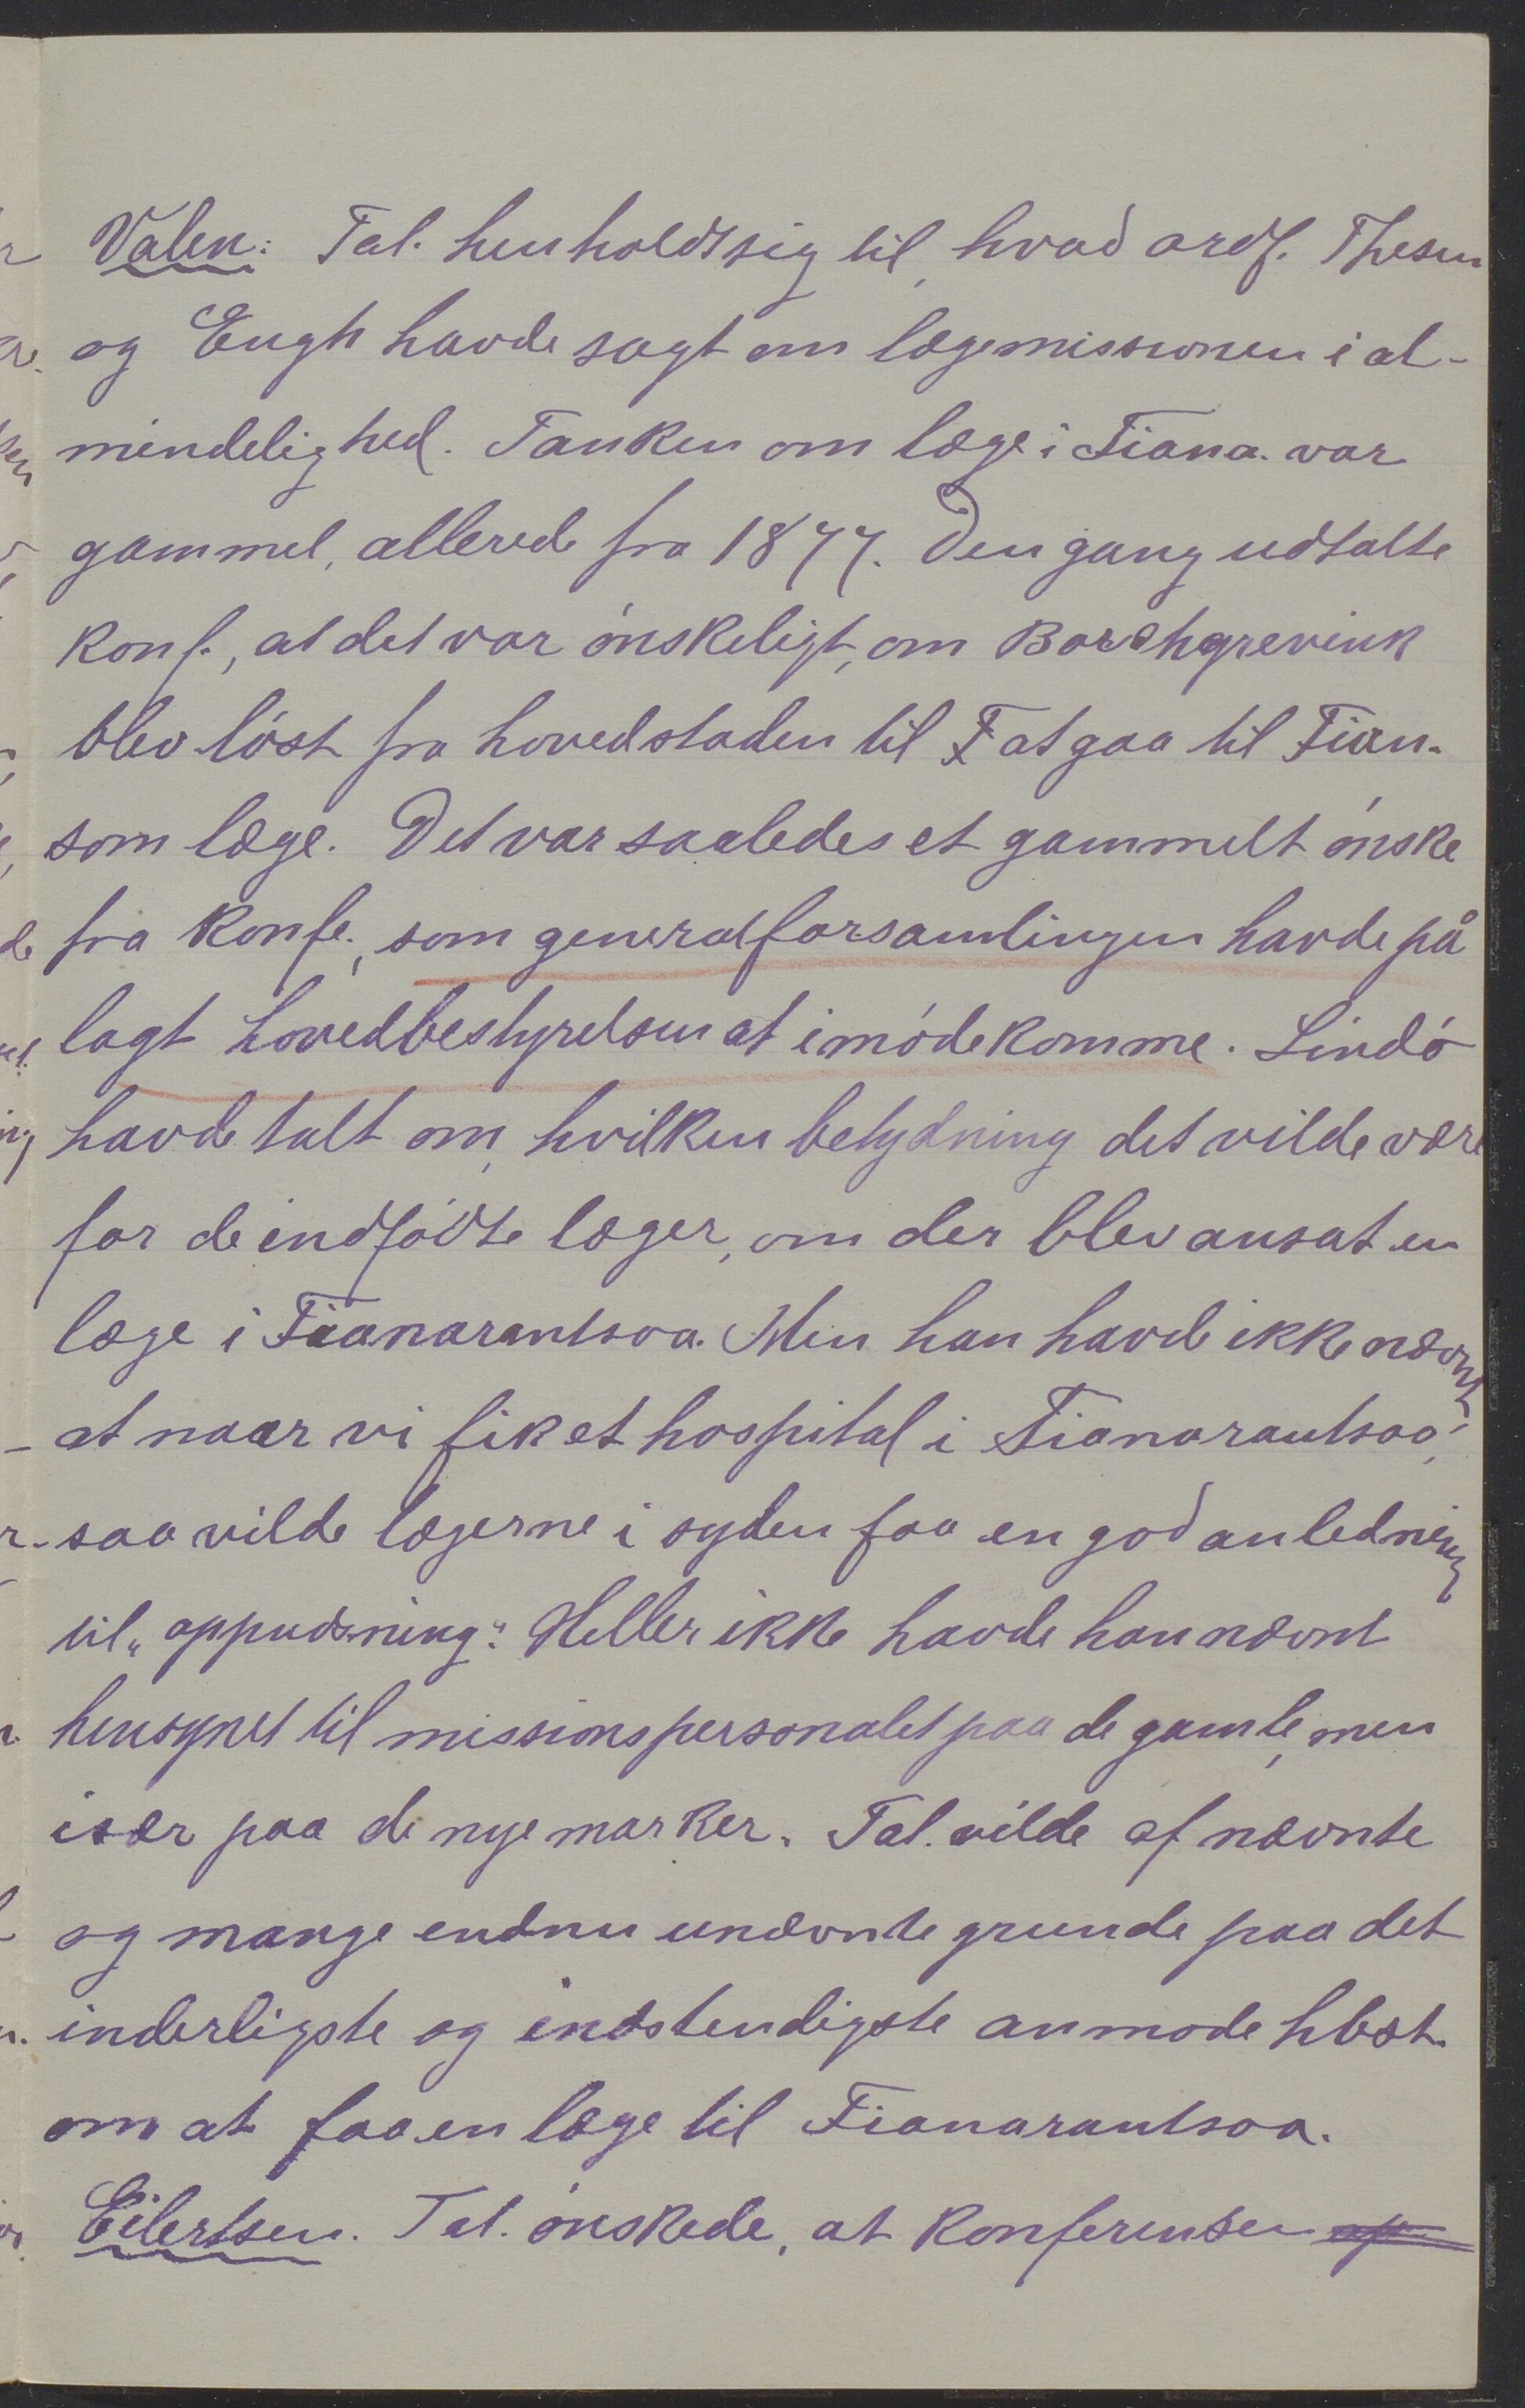 Valen: Tal. henholdt sig til, hvad ordf. Thesen
og Engh havde sagt om lægemissionen i al-
mindelighed. Tanken om læge i Fiana. var
gammel, allerede fra 1877. Den gang udtalte
konf., at det var ónskeligt, om Borchgrevink
blev lóst fra hovedstaden til F at gaa til Fian.
som læge. Det var saaledes et gammelt ónske
fra konfe., som generalforsamlingen havde på
lagt hovedbestyrelsen at imódekomme. Lindó
havde talt om, hvilken betydning det vilde være
for de indfódte læger, om der blev ansat en
læge i Fianarantsoa. Men han havde ikke nævnt,
at naar vi fik et hospital i Fianarantsoa,
saa vilde lægerne i syden faa en god anledning
til "oppudsning". Heller ikke havde han nævnt
hensynet til missionspersonalet paa de gamle, men
især paa de nye marker. Tal. vilde af nævnte
og mange endnu unævnte grunde paa det
inderligste og indstendigste anmode hbst.
om at faa en læge til Fianarantsoa.
Eilertsen. Tal. ónskede, at konferensen op